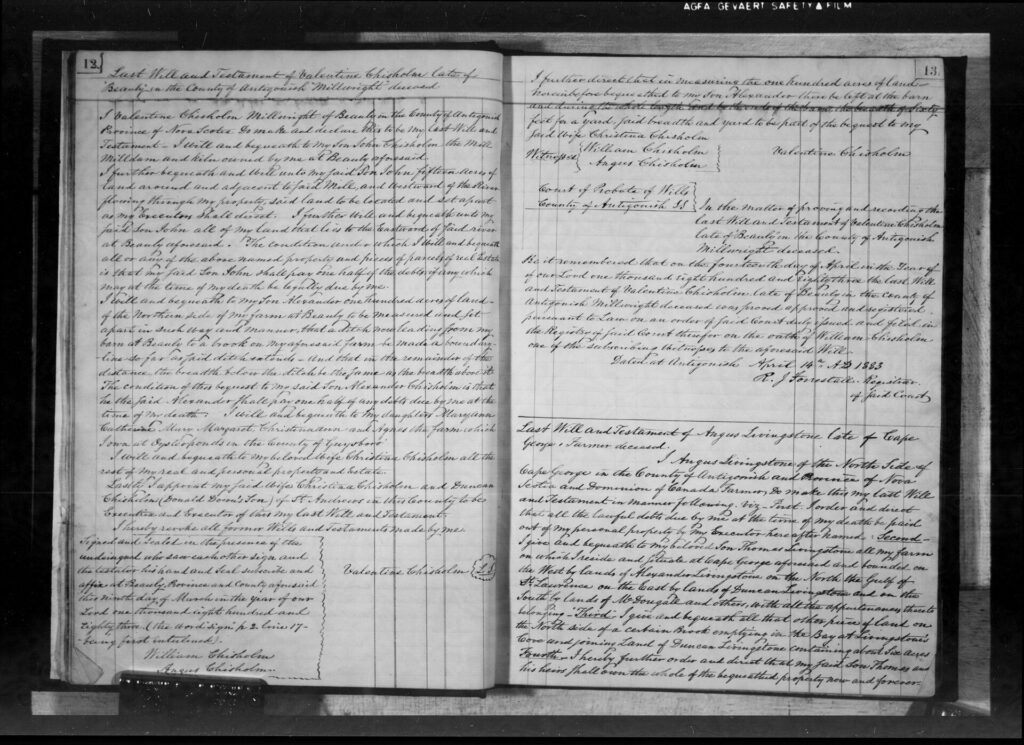 AGFA GEVAERT SAFETY FILM
12
Last Will and Testament of Valentine Chisholm late of
Beauly in the County of Antigonish Millwright deceased
I Valentine Chisholm Millwright of Beauly in the County of Antigonish
Province of Nova Scotia do make and declare this to be my last Will and
Testament - I will and bequeath to my Son John Chisholm the Mill
Milldam and kiln owned by me at Beauly aforesaid.
I further bequeath and Will unto my said Son John fifteen acres of
land around and adjacent to said Mill, and westward of the River
flowing through my property, said land to be located and set apart
as my Executors shall direct. I further Will and bequeath unto my
said Son John all of my land that lies to the Eastward of said river
at Beauly aforesaid. The condition under which I will and bequeath
all or any of the above named property and pieces of parcels of real Estate
is that my said Son John shall pay one half of the debts, if any which
may at the time of my death be legally due by me.
I will and bequeath to my Son Alexander one hundred acres of land
of the Northern side of my farm at Beauly to be measured and set
apart in such way and manner, that a ditch now leading from my
barn at Beauly to a brook on my aforesaid farm be made a boundary
line so far as said ditch extends - And that in the remainder of the
distance the breadth below the ditch be the same as the breadth above it
The condition of this bequest to my said Son Alexander Chisholm is that
he the said Alexander shall pay one half of any debts due by me at the
time of my death. I will and bequeath to my daughters Mary Ann
Catherine Mary Margaret Christina Ann and Agnes the farm which
I own at Oyster ponds in the County of Guysboro
I will and bequeath to my beloved Wife Christina Chisholm all the
rest of my real and personal property and estate.
Lastly I appoint my said Wife Christina Chisholm and Duncan
Chisholm (Donald Son) of St. Andrews in this County to be
Executrix and Executor of this my last Will and Testament,
I hereby revoke all former Wills and Testaments made by me
Signed and Sealed in the presence of the
undersigned who saw each other sign and
the testator his hand and Seal subscribe and
affix at Beauly, Province and County aforesaid
this ninth day of March in the year of our
Lord one thousand eight hundred and
Eighty three (the word "sign" p 2. line 17-
being first interlined).
Valentine Chisholm L S
William Chisholm
Angus Chisholm
13
I further direct that in measuring the one hundred acres of land
hereinbefore bequeathed to my Son Alexander there be left at the barn
feet for a yard, said breadth and yard to be part of the bequest to my
said Wife Christina Chisholm
Witnesses William Chisholm
Angus Chisholm
Valentine Chisholm
Court of Probate of Wills
County of Antigonish S S
In the matter of proving and recording the
last Will and Testament of Valentine Chisholm
late of Beauly in the County of Antigonish
Millwright deceased.
Be it remembered that on the fourteenth day of April in the Year of
our Lord one thousand eight hundred and Eighty three the last Will
and Testament of Valentine Chisholm late of Beauly in the County of
Antigonish Millwright deceased was proved approved and registered
pursuant to Law on an order of said Court duly issued and filed in
the Registry of said Court therefor on the oath of William Chisholm
one of the subscribing witnesses to the aforesaid Will -
Dated at Antigonish April 14th AD 1883
R. J Forrestall Registrar
of said Court
Last Will and Testament of Angus Livingstone late of Cape
George, Farmer deceased.
I Angus Livingstone of the North Side of
Cape George in the County of Antigonish and Province of Nova
Scotia and Dominion of Canada Farmer, Do make this my last Will
and Testament in manner following. viz - First. I order and direct
that all the lawful debts due by me at the time of my death be paid
out of my personal property by my Executor here after named. Second -
I give and bequeath to my beloved Son Thomas Livingstone all my farm
on which I reside and situate at Cape George aforesaid and bounded on
the West by lands of Alexander Livingstone on the North the Gulf of
St Lawrence on the East by lands of Duncan Livingstone and on the
South by lands of McDougall and others, with all the appurtenances thereto
belonging - Third - I give and bequeath all that other piece of land on
the North side of a certain Brook emptying in the Bay at Livingstone's
Cove and joining Land of Duncan Livingstone containing about Six acres
Fourth - I hereby further order and direct that my said Son Thomas and
his heirs shall own the whole of the bequeathed property now and forever.